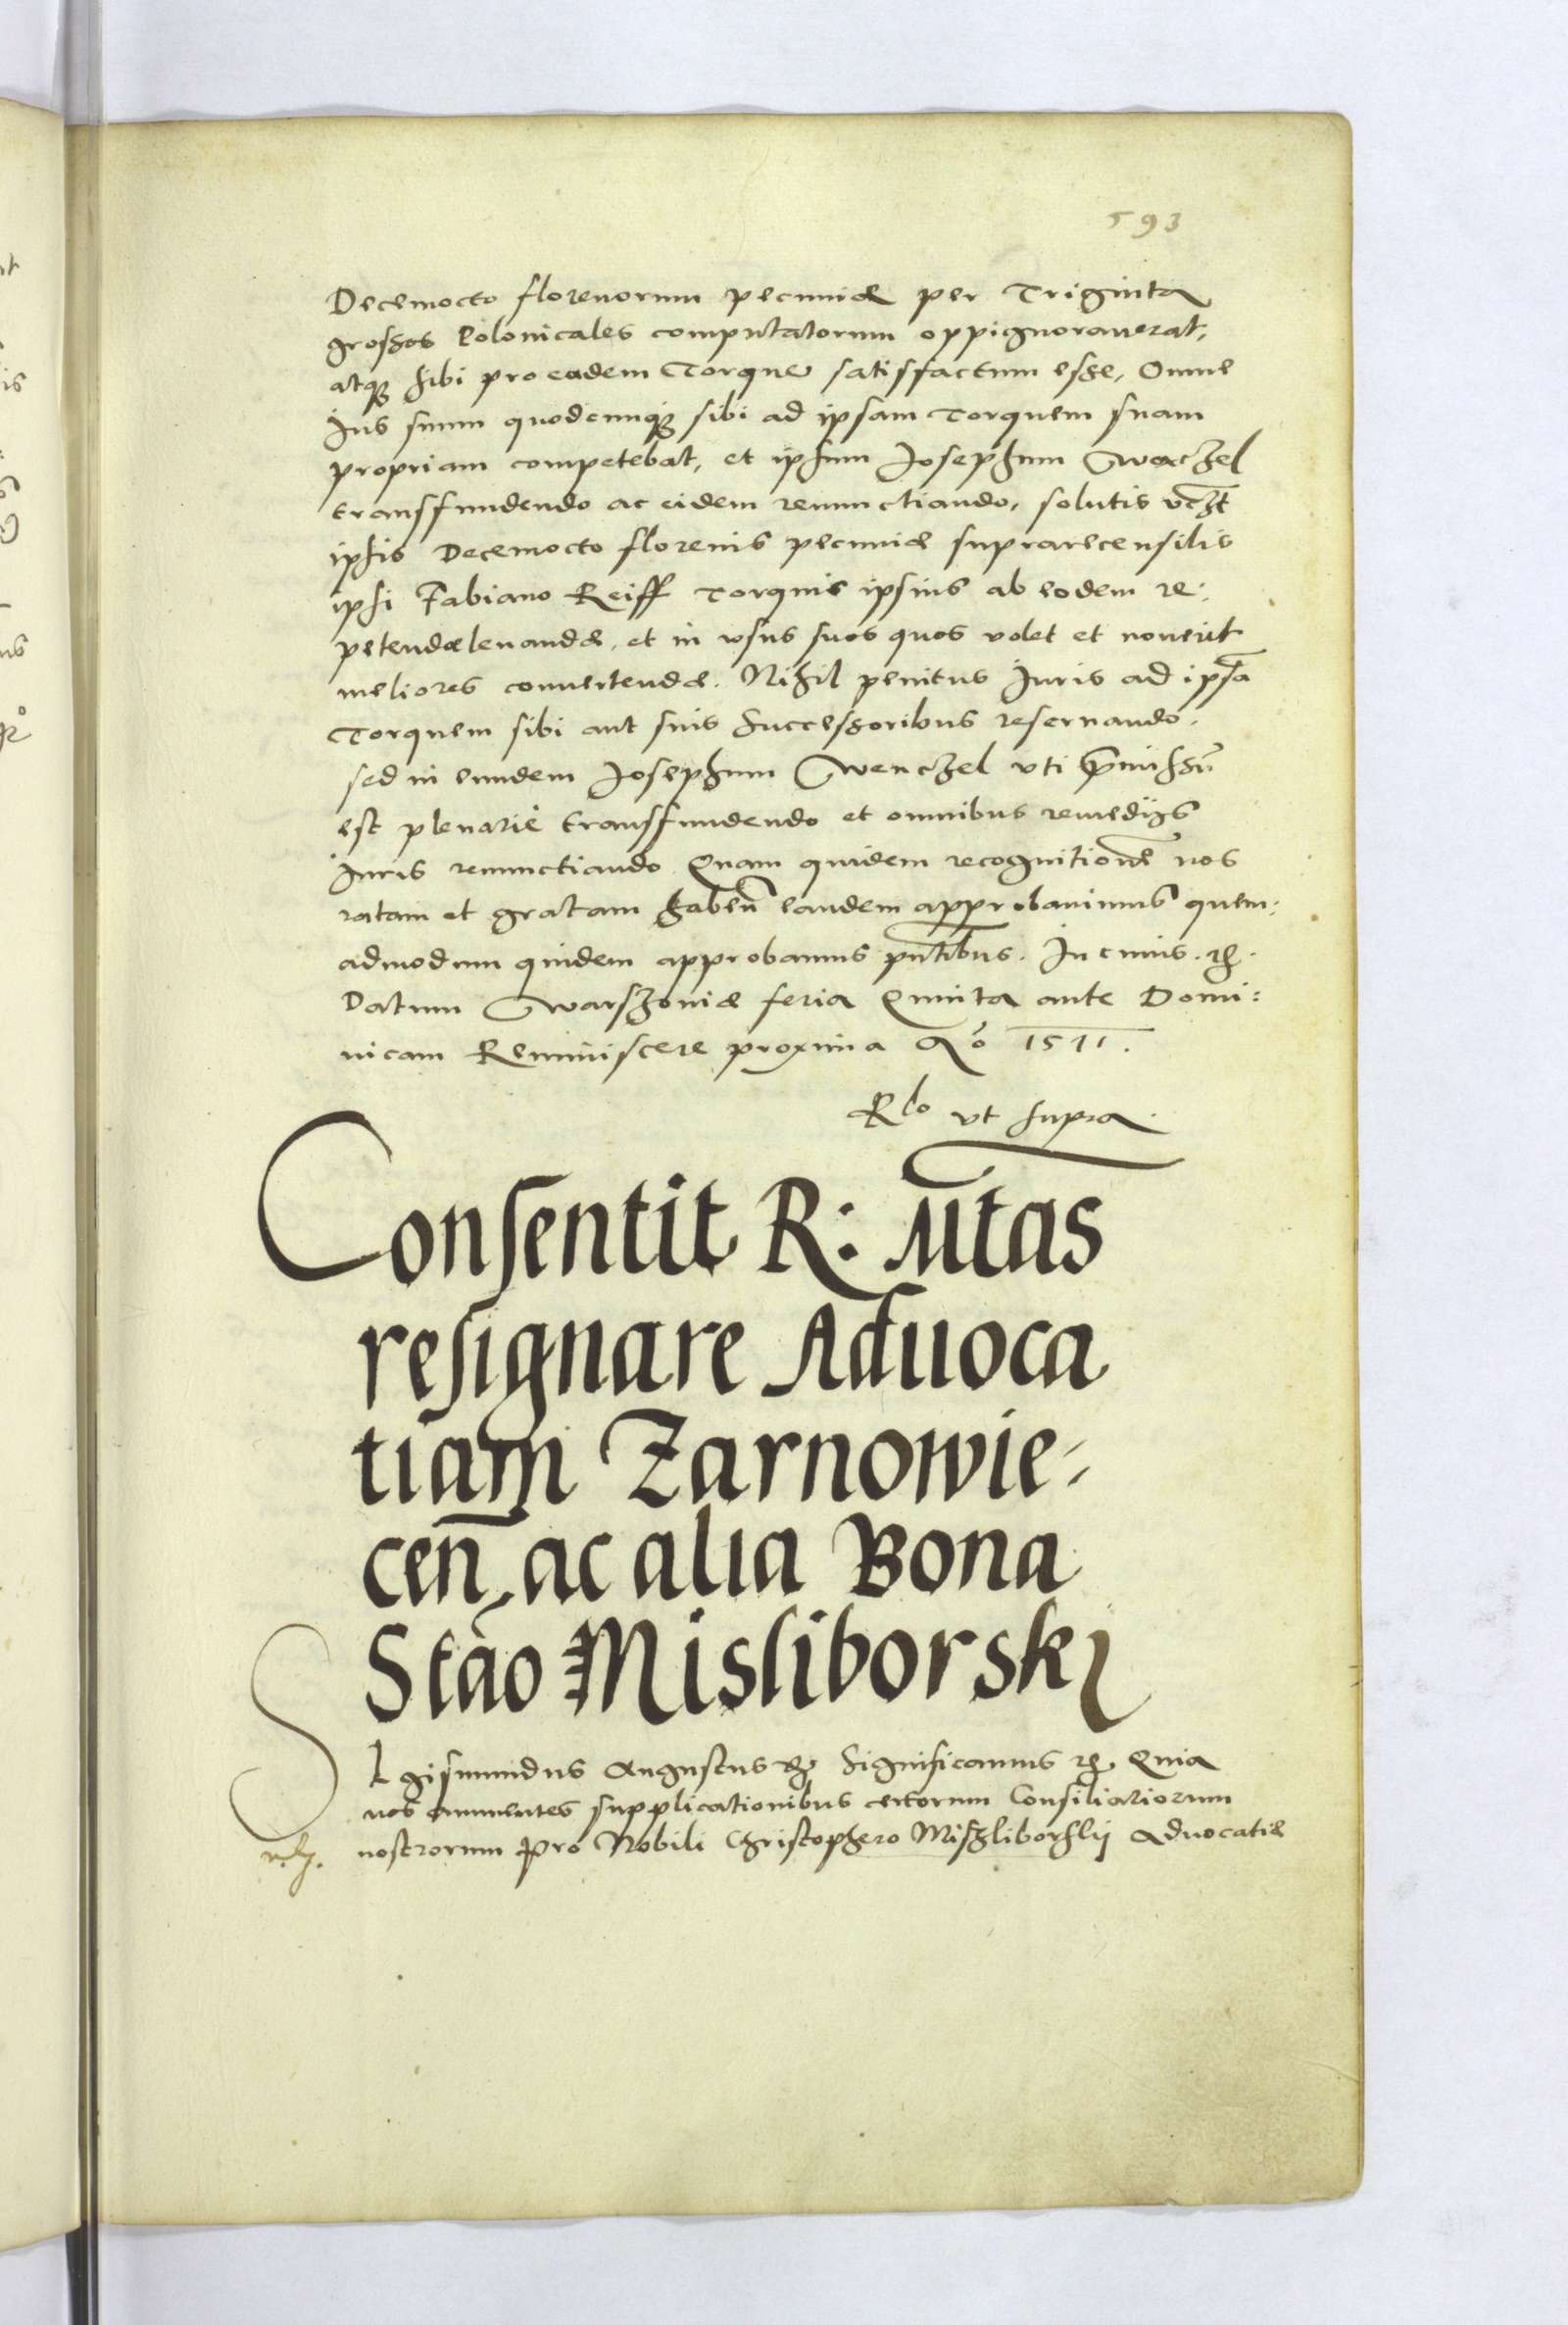 593
Decemocto florenorum pecuniæ per Triginta
groszos Polonicales computatorum oppignoraverat,
atq3 sibi pro eadem Torque satisfactum esse, Omne
Jus suum quodcunq3 sibi ad ipsam Torquem suam
propriam competebat, et ipsum Josephum Wenczel
transffundendo ac eidem renunctiando, solutis
ipsis Decemocto florenis pecuniæ suprarecensitis
ipsi Fabiano Reiff Torquis ipsius ab eodem re:
petendæ levandæ, et in usus suos quos volet et noverit
meliores convertendæ. Nihil penitus Juris ad ipsã
Torquem sibi aut suis Successoribus reservando.
sed in eundem Josephum Wenczel uti p̃missũ
est plenariè transffundendo et omnibus remedijs
Juris renunctiando Quam quidem recognitionẽ nos
ratam et gratam habeñ eandem approbavimus quem:
admodum quidem approbamus pñtibus. In cuius. rei.
Datum Warszoviæ feria Quinta ante Domi:
nicam Reminiscere proxima Aõ 1571.
Rlo ut supra.
Consentit R: Mtas
resignare Aduoca
tiam Zarnowie-
ceñ, ac alia Bona
Stão Misliborskj
SIgismundus Augustus etc Significamus etc Quia
nos annuentes supplicationibus certorum Consiliariorum
nostrorum pro Nobili Christophero Miszliborsky Advocatiæ